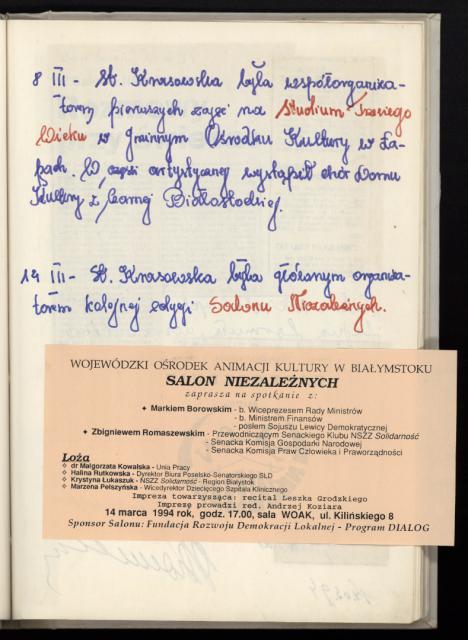 8 III - St. Krasowska była współorganiza-
torem pierwszych zajęć na Studium Trzeciego
Wieku w Gminnym Ośrodku Kultury w Ła-
pach. W części artystycznej wystąpił chór Domu
Kultury z Czarnej Białostockiej.
14 III - St. Krasowska była głównym organiza-
torem kolejnej edycji Salonu Niezależnych.
WOJEWÓDZKI OŚRODEK ANIMACJI KULTURY W BIAŁYMSTOKU
SALON NIEZALEŻNYCH
zaprasza na spotkanie z:
✦ Markiem Borowskim - b. Wiceprezesem Rady Ministrów
- b. Ministrem Finansów
- posłem Sojuszu Lewicy Demokratycznej
✦ Zbigniewem Romaszewskim - Przewodniczącym Senackiego Klubu NSZZ Solidarność
- Senacka Komisja Gospodarki Narodowej
- Senacka Komisja Praw Człowieka i Praworządności
Loża
❖ dr Małgorzata Kowalska - Unia Pracy
❖ Halina Rutkowska - Dyrektor Biura Poselsko-Senatorskiego SLD
❖ Krystyna Łukaszuk - NSZZ Solidarność - Region Białystok
❖ Marzena Pełszyńska - Wicedyrektor Dziecięcego Szpitala Klinicznego
Impreza towarzysząca: recital Leszka Grodzkiego
Imprezę prowadzi red. Andrzej Koziara
14 marca 1994 rok, godz. 17.00, sala WOAK, ul. Kilińskiego 8
Sponsor Salonu: Fundacja Rozwoju Demokracji Lokalnej - Program DIALOG